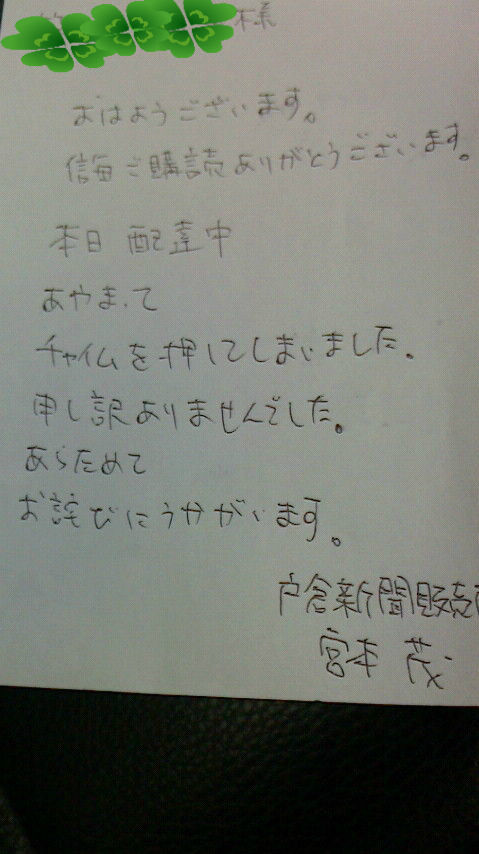 様
おはようございます。
信毎ご購読ありがとうございます。
本日 配達中
あやまって
チャイムを押してしまいました。
申し訳ありませんでした。
あらためて
お詫びにうかがいます。
戸倉新聞販売
宮本 茂